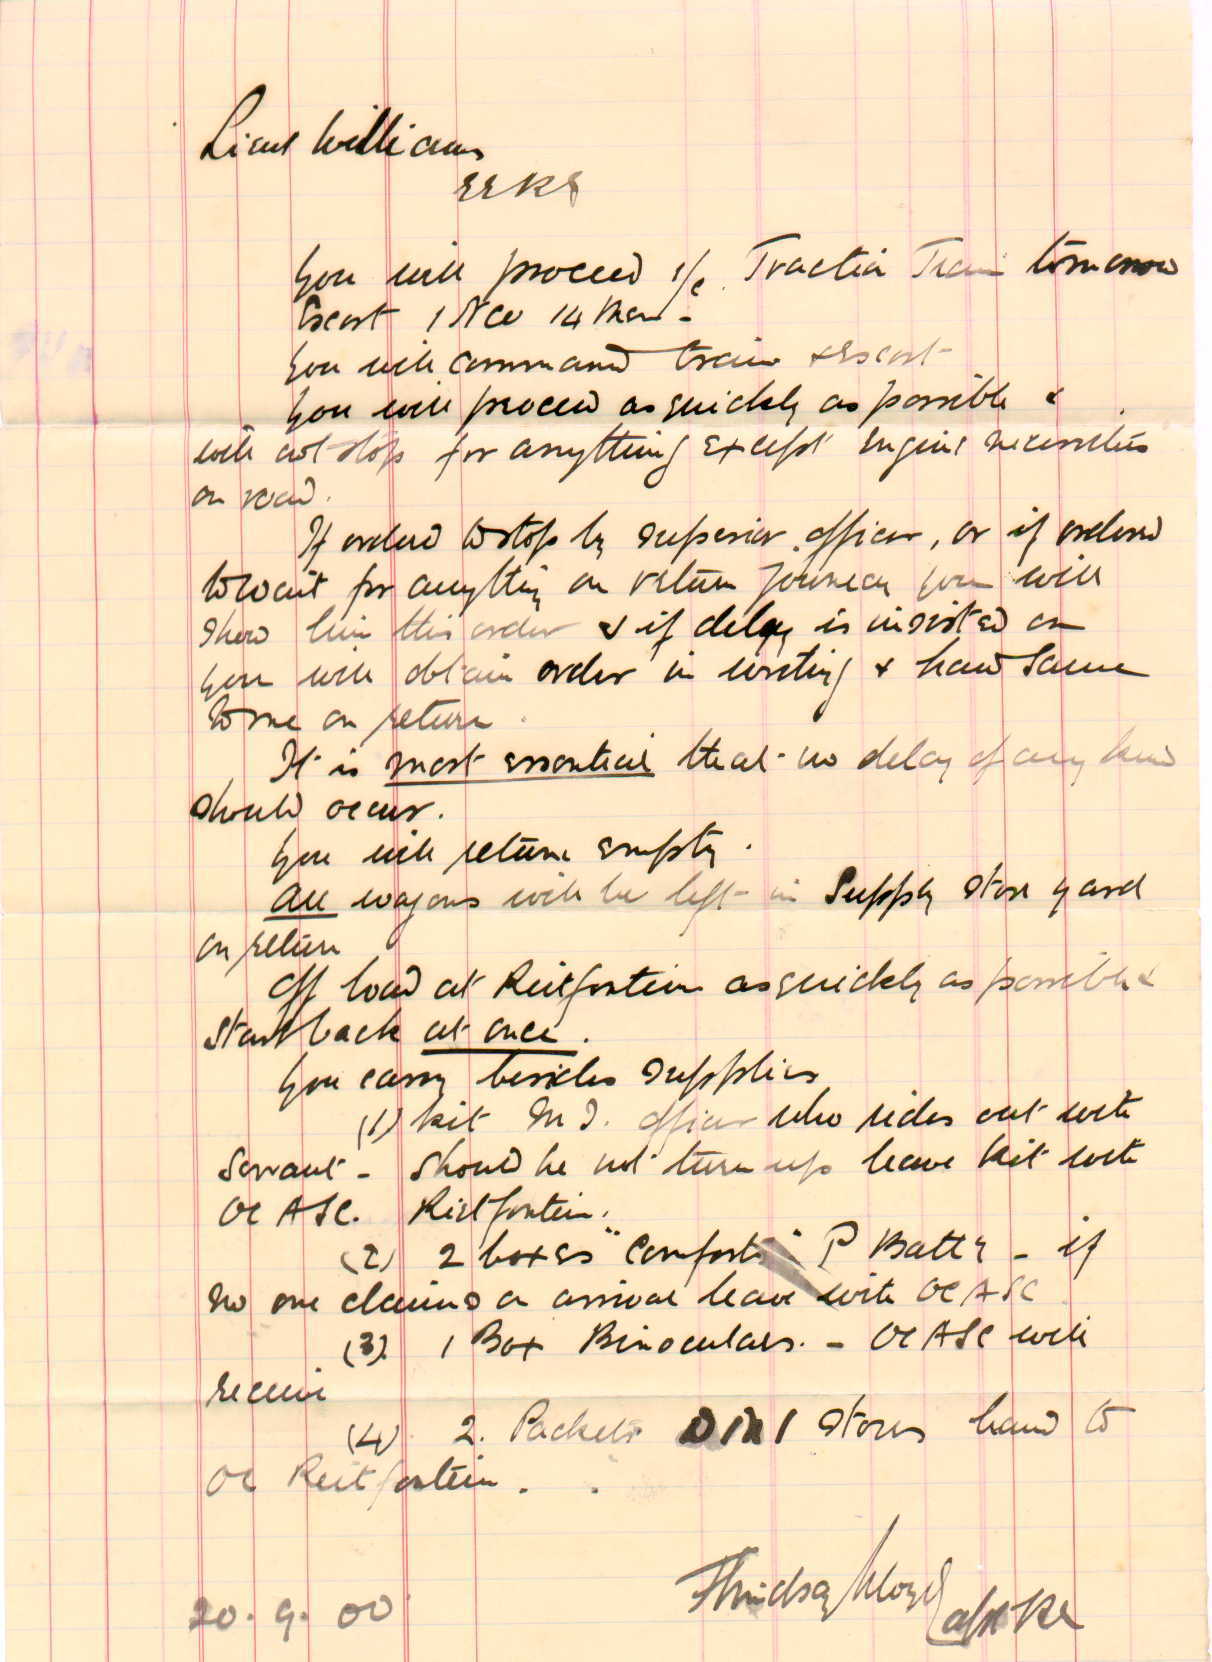 Lieut Williams
EERE
You will proceed i/c Traction Train tomorrow
Escort 1 NCO 14 Men -
You will command train & Escort
You will proceed as quickly as possible &
will not stop for anything except Engine necessities
on road.
If ordered to stop by superior officer, or if ordered
to wait for anything on return journey you will
show him this order & if delay is insisted on
you will obtain order in writing & hand same
to me on return.
It is most essential that no delay of any kind
should occur.
You will return empty.
All wagons will be left in Supply Store yard
on return
Off load at Reitfontein as quickly as possible &
start back at once.
You carry besides supplies
(1) Kit M I. officer who rides out with
Servant - should he not turn up leave kit with
OC ASC. Rietfontein.
(2) 2 boxes "Comforts" P Batty - if
no one claims on arrival leave with OC ASC
(3) 1 Box Binoculars. - OC ASC will
receive
(4) 2. Packets stores hand to
OC Reitfontein.
Lindsay Lloyd
Capt RE
20.9.00